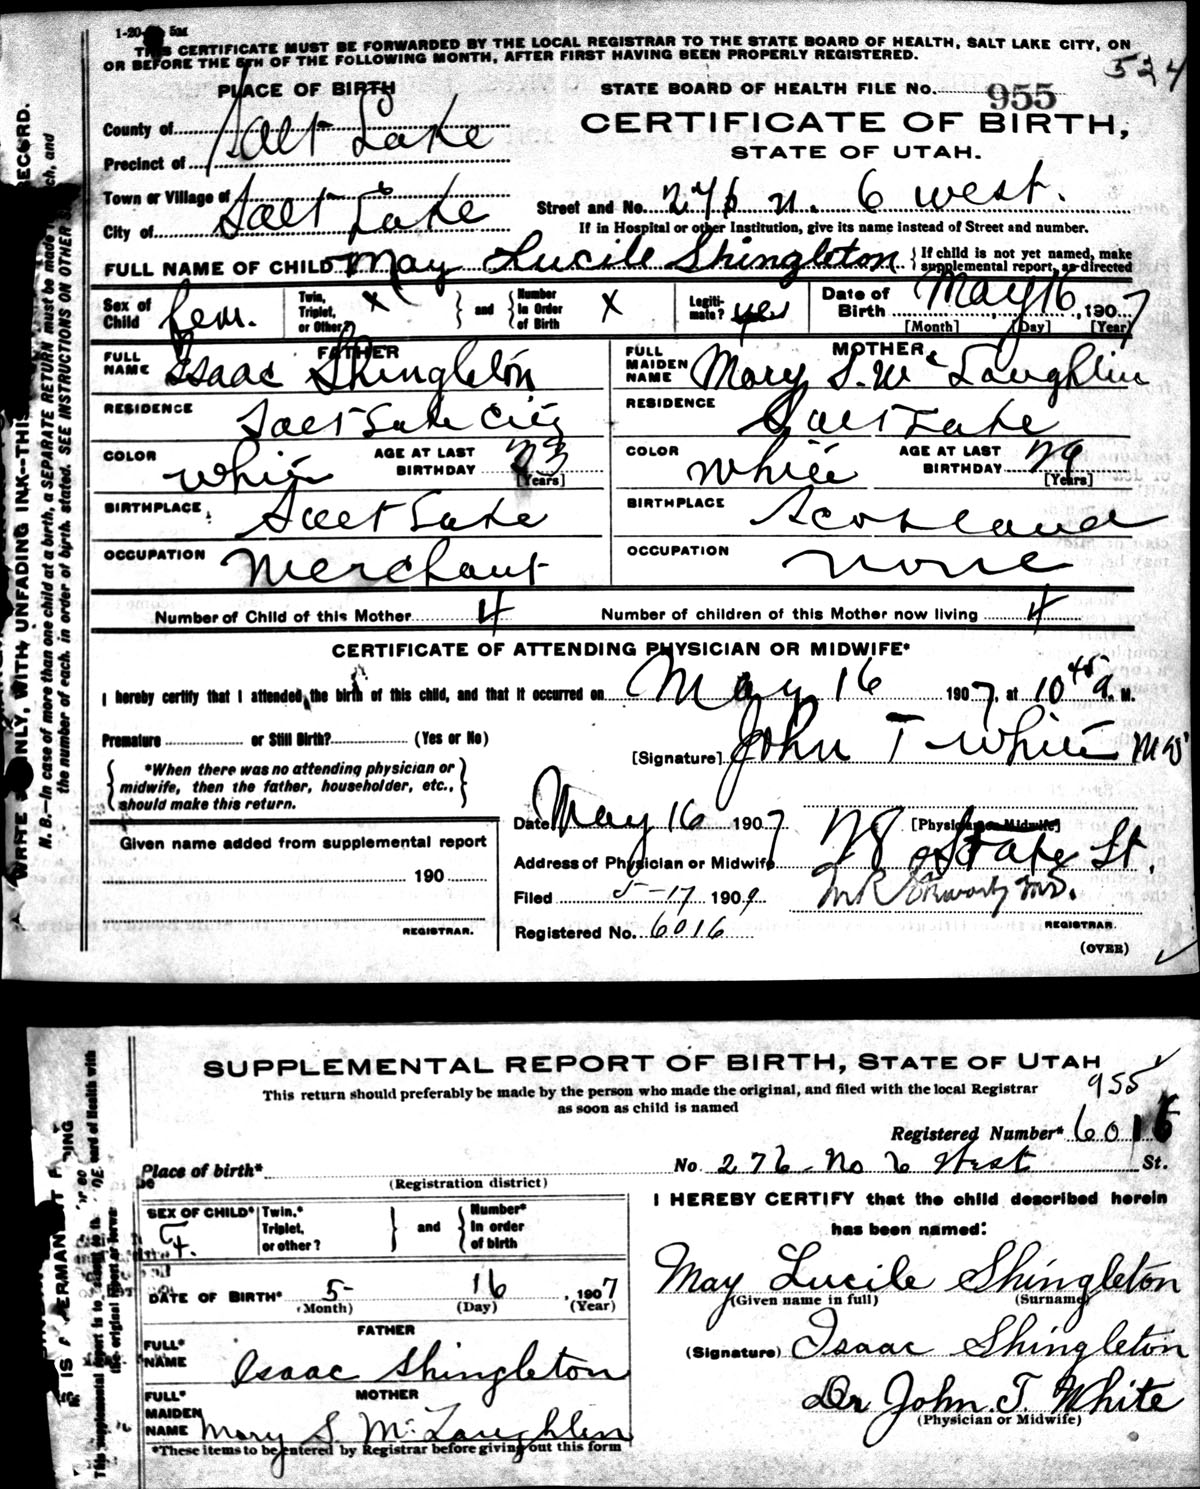 1-20 5M
THIS CERTIFICATE MUST BE FORWARDED BY THE LOCAL REGISTRAR TO THE STATE BOARD OF HEALTH, SALT LAKE CITY, ON
OR BEFORE THE 5TH OF THE FOLLOWING MONTH, AFTER FIRST HAVING BEEN PROPERLY REGISTERED.
524
PLACE OF BIRTH
STATE BOARD OF HEALTH FILE No. 955
County of Salt Lake
CERTIFICATE OF BIRTH,
Precinct of
STATE OF UTAH.
Town or Village of
City of Salt Lake
Street and No. 276 N. 6 West.
If in Hospital or other Institution, give its name instead of Street and number.
FULL NAME OF CHILD May Lucile Shingleton { If child is not yet named, make
supplemental report, as directed
Sex of Child fem. Twin, Triplet, or Other? X and Number in Order of Birth X Legiti-mate? yes Date of Birth May 16, 1907
[Month] [Day] [Year]
FATHER
FULL NAME Isaac Shingleton
RESIDENCE Salt Lake City
COLOR White AGE AT LAST BIRTHDAY 33
[Years]
BIRTHPLACE Salt Lake
OCCUPATION Merchant
MOTHER
FULL MAIDEN NAME Mary S. McLaughlin
RESIDENCE Salt Lake
COLOR White AGE AT LAST BIRTHDAY 29
[Years]
BIRTHPLACE Scotland
OCCUPATION None
Number of Child of this Mother 4 Number of children of this Mother now living 4
CERTIFICATE OF ATTENDING PHYSICIAN OR MIDWIFE*
I hereby certify that I attended the birth of this child, and that it occurred on May 16 1907, at 10 45 a. M.
Premature or Still Birth? (Yes or No)
[Signature] John T White MD
*When there was no attending physician or
midwife, then the father, householder, etc.,
should make this return.
Date May 16 1907
[Physician or Midwife]
Address of Physician or Midwife State St.
Filed 5-17 1907
REGISTRAR.
Registered No. 6016
(OVER)
Given name added from supplemental report
190
REGISTRAR.
WRITE ONLY, WITH UNFADING INK--THIS RECORD.
N. B.—In case of more than one child at a birth, a SEPARATE RETURN must be made ch, and
the number of each, in order of birth, stated. SEE INSTRUCTIONS ON OTHER S
SUPPLEMENTAL REPORT OF BIRTH, STATE OF UTAH
This return should preferably be made by the person who made the original, and filed with the local Registrar
as soon as child is named
955
Registered Number* 6016
Place of birth*
(Registration district)
No 276 No 6 West St.
SEX OF CHILD* F. Twin,* Triplet, or other? and Number* in order of birth
I HEREBY CERTIFY that the child described herein
has been named:
May Lucile Shingleton
(Given name in full) (Surname)
DATE OF BIRTH* 5- 16, 1907
(Month) (Day) (Year)
FATHER
FULL* NAME Isaac Shingleton
(Signature) Isaac Shingleton
MOTHER
FULL* MAIDEN NAME Mary S. McLaughlin
Dr John T. White
(Physician or Midwife)
*These items to be entered by Registrar before giving out this form